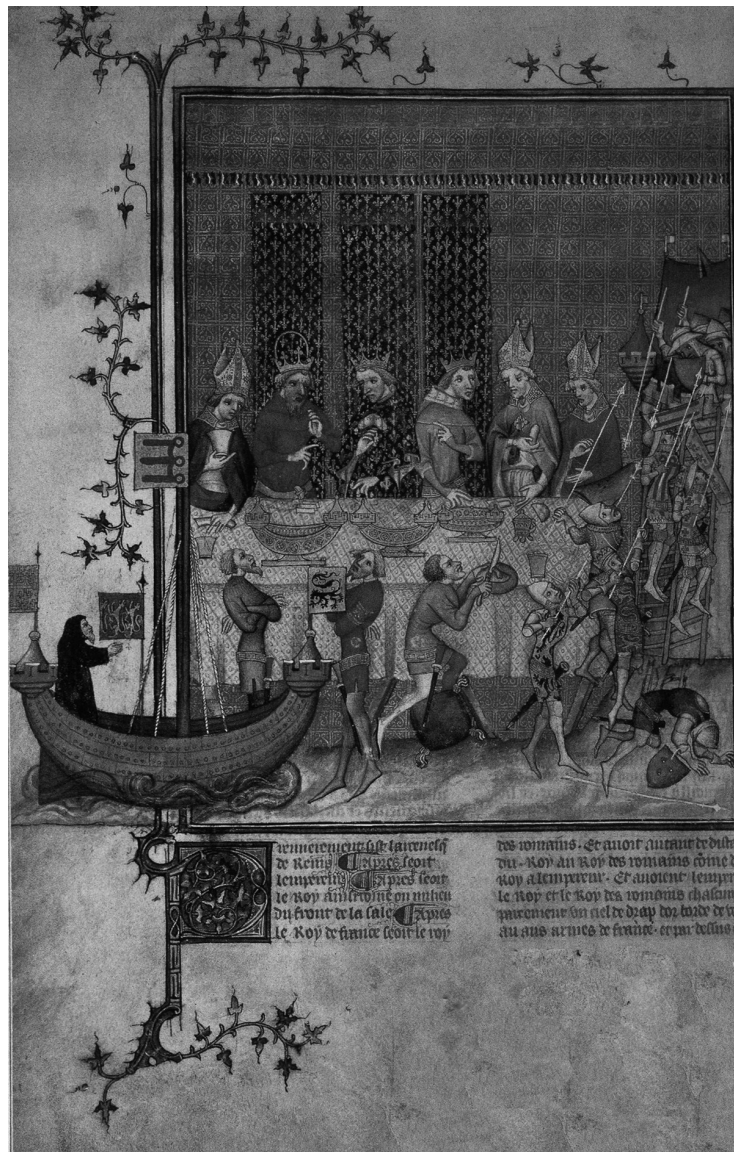 Premierement sist larcevesq
de Reins ¶ Apres seoit
lempereur ¶ Apres seoit
le Roy ainsi come ou milieu
du front de la sale ¶ Apres
le Roy de france seoit le roy
des romains. Et avoit autant de dista
du. Roy au Roy des romains come d
Roy a lempereur. Et avoient lemper
le Roy et le Roy des romains chascun
parement un ciel de drap dor borde de v
au aus armes de france. et par dessus